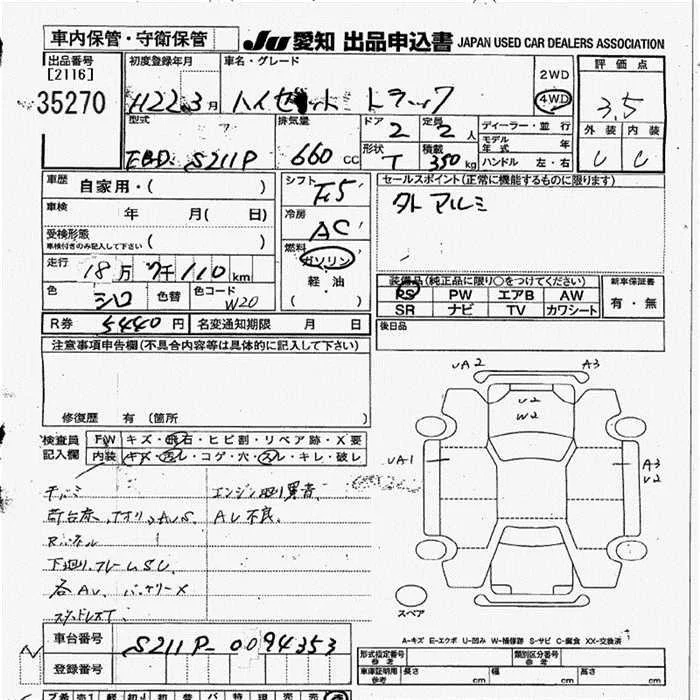 車内保管・守衛保管 JU 愛知 出品申込書 JAPAN USED CAR DEALERS ASSOCIATION
出品番号 初度登録年月 車名・グレード 評価点
[2116] 2WD
35270 H22.3月 ハイゼット トラック 4WD 3.5
型式 排気量 ドア 定員 ディーラー・並行 外装 内装
2 2人 モデル年式 年
EBD S211P 660cc 形状 T 積載 350kg ハンドル 左・右
車歴 自家用・( ) シフト F5 セールスポイント(正常に機能するものに限ります)
車検 年 月( 日) 冷房 AC 外 アルミ
受検形態 ( )
車検付きのみ記入して下さい
燃料
ガソリン
走行 18万7千110km 軽油
( )
装備品(純正品に限り○をつけてください) 新車保証書
色 シロ 色替 色コード W20 PS PW エアB AW 有・無
SR ナビ TV カワシート
R券 5440円 名変通知期限 月 日 後日品
注意事項申告欄(不具合内容等は具体的に記入して下さい)
修復歴 有 (箇所 )
UA2 A3
U2
W2
UA1 A3
U2
検査員記入欄 FW キズ・飛石・ヒビ割・リペア跡・X要
内装 キズ・汚レ・コゲ・穴・スレ・キレ・破レ
エンジン廻り異音
Rパネル
下廻り、フレームSU
各AU、バッテリーX
スタッドレスT
スペア
A-キズ E-エクボ U-凹み W-補修跡 S-サビ C-腐食 XX-交換済
車台番号 S211P-0094353
登録番号
形式指定番号 参考 類別区分番号 参考
車庫証明用 参考 長さ cm 幅 cm 高さ cm